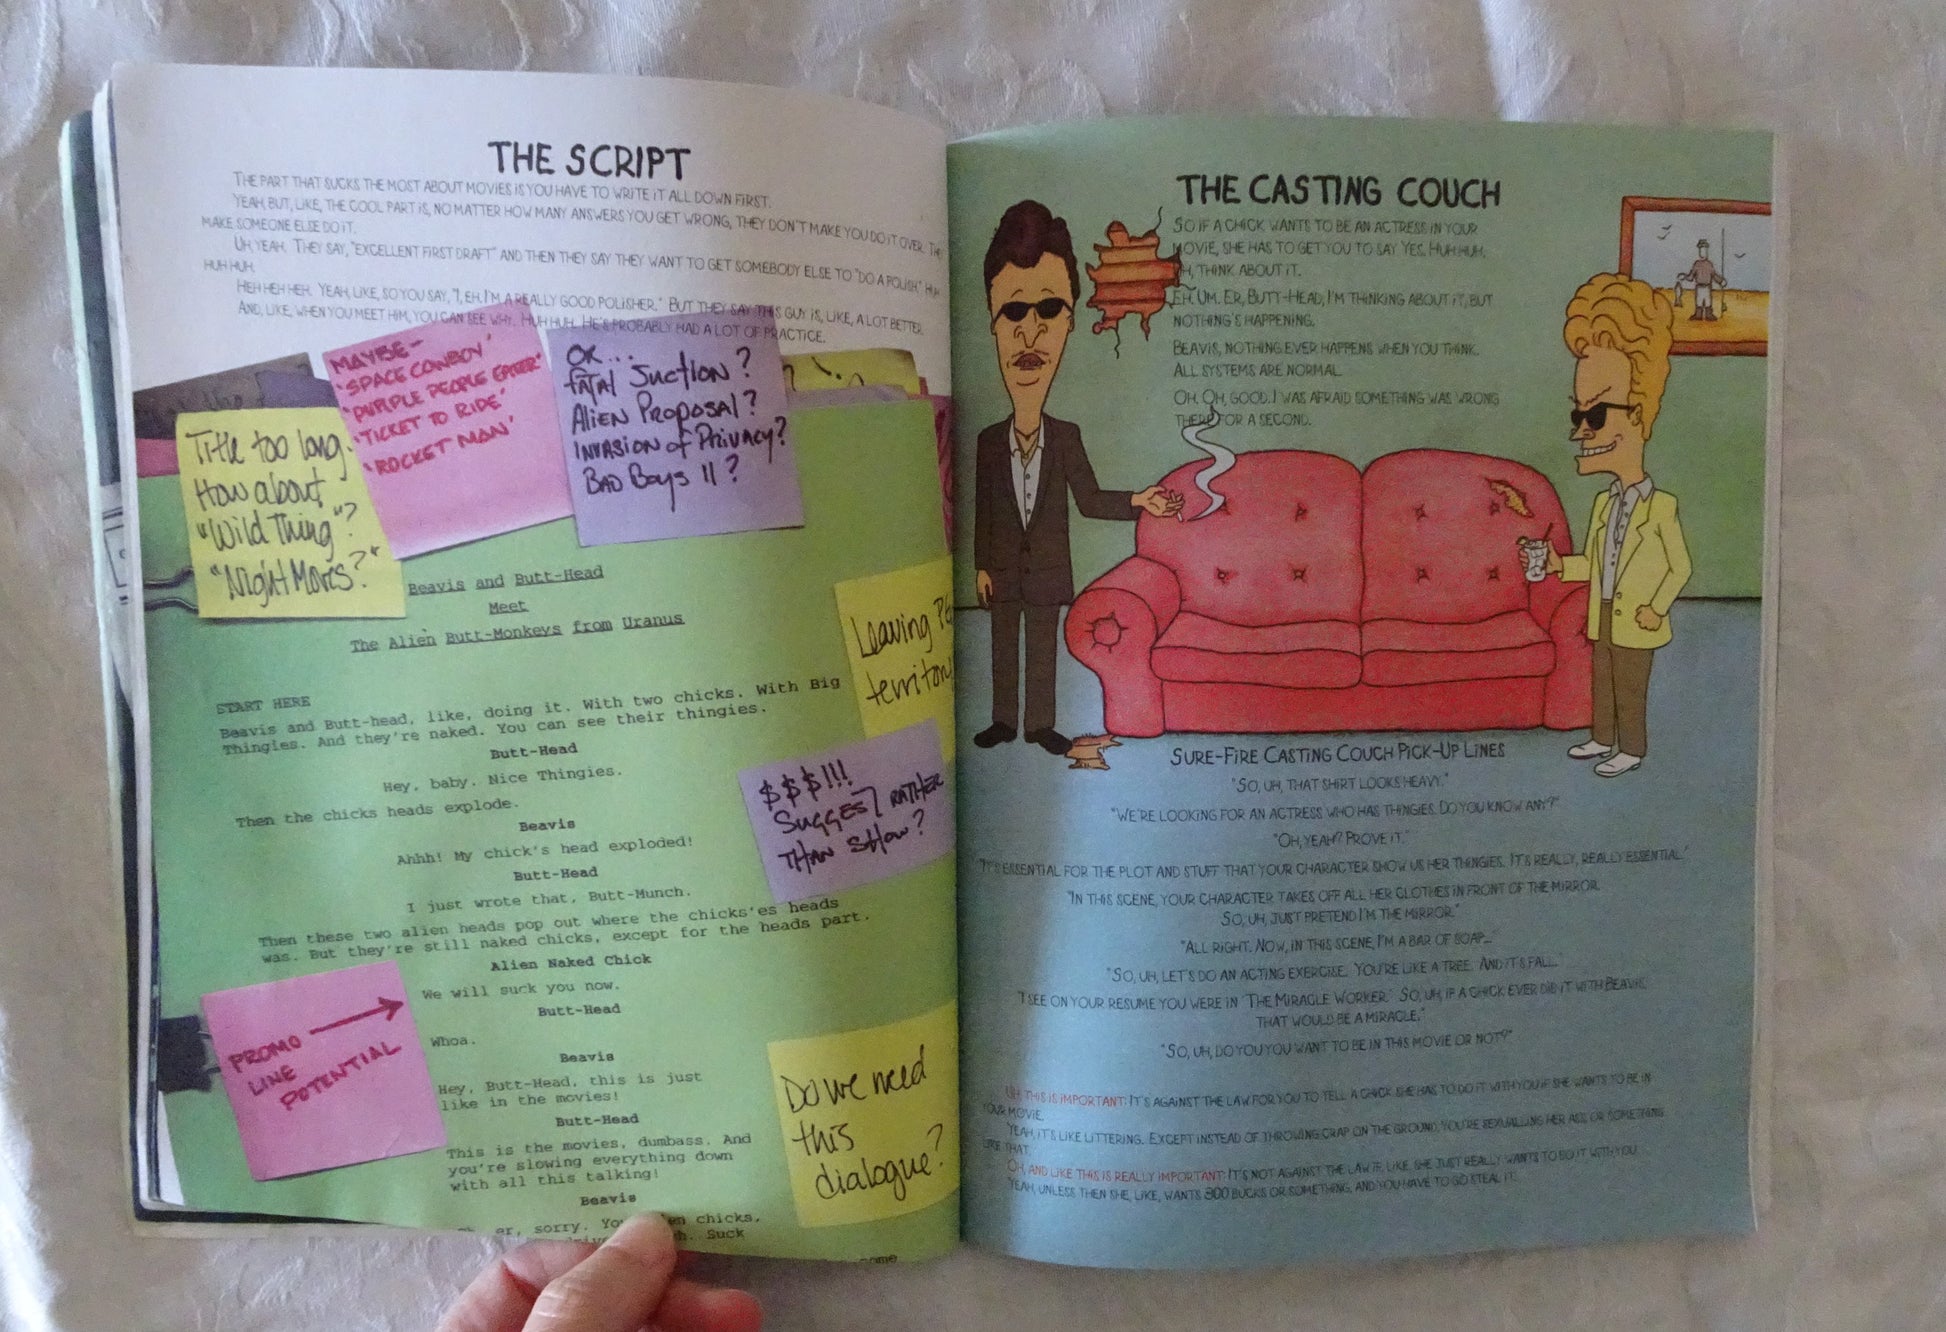 THE SCRIPT
THE PART THAT SUCKS THE MOST ABOUT MOVIES IS YOU HAVE TO WRITE IT ALL DOWN FIRST.
YEAH, BUT, LIKE, THE COOL PART IS, NO MATTER HOW MANY ANSWERS YOU GET WRONG, THEY DON'T MAKE YOU DO IT OVER. THE
MAKE SOMEONE ELSE DO IT.
UH, YEAH. THEY SAY, "EXCELLENT FIRST DRAFT" AND THEN THEY SAY THEY WANT TO GET SOMEBODY ELSE TO "DO A POLISH." HUH
HUH HUH.
HEH HEH HEH. YEAH, LIKE, SO YOU SAY, "I, EH, I'M A REALLY GOOD POLISHER." BUT THEY SAY THIS GUY IS, LIKE, A LOT BETTER.
AND, LIKE, WHEN YOU MEET HIM, YOU CAN SEE WHY. HUH HUH. HE'S PROBABLY HAD A LOT OF PRACTICE.
Title too long.
How about
"Wild Thing"?
"Night Moves?"
MAYBE-
'SPACE COWBOY'
'PURPLE PEOPLE EATER'
'TICKET TO RIDE'
'ROCKET MAN'
OK...
FATAL SUCTION?
ALIEN PROPOSAL?
INVASION of PRIVACY?
BAD Boys II?
Beavis and Butt-Head
Meet
The Alien Butt-Monkeys from Uranus
START HERE
Beavis and Butt-head, like, doing it. With two chicks. With Big
Thingies. And they're naked. You can see their thingies.
Butt-Head
Hey, baby. Nice Thingies.
Then the chicks heads explode.
Beavis
Ahhh! My chick's head exploded!
Butt-Head
I just wrote that, Butt-Munch.
Then these two alien heads pop out where the chicks'es heads
was. But they're still naked chicks, except for the heads part.
Alien Naked Chick
We will suck you now.
Butt-Head
Whoa.
Beavis
Hey, Butt-Head, this is just
like in the movies!
Butt-Head
This is the movies, dumbass. And
you're slowing everything down
with all this talking!
Beavis
er, sorry. chicks,
Suck
come
Leaving PG
territory
$$$!!!
SUGGEST RATHER
THAN SHOW?
PROMO
LINE
POTENTIAL
Do we need
this
dialogue?
THE CASTING COUCH
SO IF A CHICK WANTS TO BE AN ACTRESS IN YOUR
MOVIE, SHE HAS TO GET YOU TO SAY YES. HUH HUH,
UH, THINK ABOUT IT.
EH. UM. ER, BUTT-HEAD, I'M THINKING ABOUT IT, BUT
NOTHING'S HAPPENING.
BEAVIS, NOTHING EVER HAPPENS WHEN YOU THINK.
ALL SYSTEMS ARE NORMAL.
OH. OH, GOOD. I WAS AFRAID SOMETHING WAS WRONG
THERE FOR A SECOND.
SURE-FIRE CASTING COUCH PICK-UP LINES
"SO, UH, THAT SHIRT LOOKS HEAVY."
"WE'RE LOOKING FOR AN ACTRESS WHO HAS THINGIES. DO YOU KNOW ANY?"
"OH, YEAH? PROVE IT."
"IT'S ESSENTIAL FOR THE PLOT AND STUFF THAT YOUR CHARACTER SHOW US HER THINGIES. IT'S REALLY, REALLY ESSENTIAL."
"IN THIS SCENE, YOUR CHARACTER TAKES OFF ALL HER CLOTHES IN FRONT OF THE MIRROR.
SO, UH, JUST PRETEND I'M THE MIRROR."
"ALL RIGHT. NOW, IN THIS SCENE, I'M A BAR OF SOAP..."
"SO, UH, LET'S DO AN ACTING EXERCISE. YOU'RE LIKE A TREE. AND IT'S FALL."
"I SEE ON YOUR RESUME YOU WERE IN 'THE MIRACLE WORKER.' SO, UH, IF A CHICK EVER DID IT WITH BEAVIS,
THAT WOULD BE A MIRACLE."
"SO, UH, DO YOU YOU WANT TO BE IN THIS MOVIE OR NOT?"
UH, THIS IS IMPORTANT: IT'S AGAINST THE LAW FOR YOU TO TELL A CHICK SHE HAS TO DO IT WITH YOU IF SHE WANTS TO BE IN
YOUR MOVIE.
YEAH, IT'S LIKE LITTERING. EXCEPT INSTEAD OF THROWING CRAP ON THE GROUND, YOU'RE SEXUALLING HER ASS OR SOMETHING
LIKE THAT.
OH, AND LIKE THIS IS REALLY IMPORTANT: IT'S NOT AGAINST THE LAW IF, LIKE, SHE JUST REALLY WANTS TO DO IT WITH YOU.
YEAH, UNLESS THEN SHE, LIKE, WANTS 300 BUCKS OR SOMETHING, AND YOU HAVE TO GO STEAL IT.